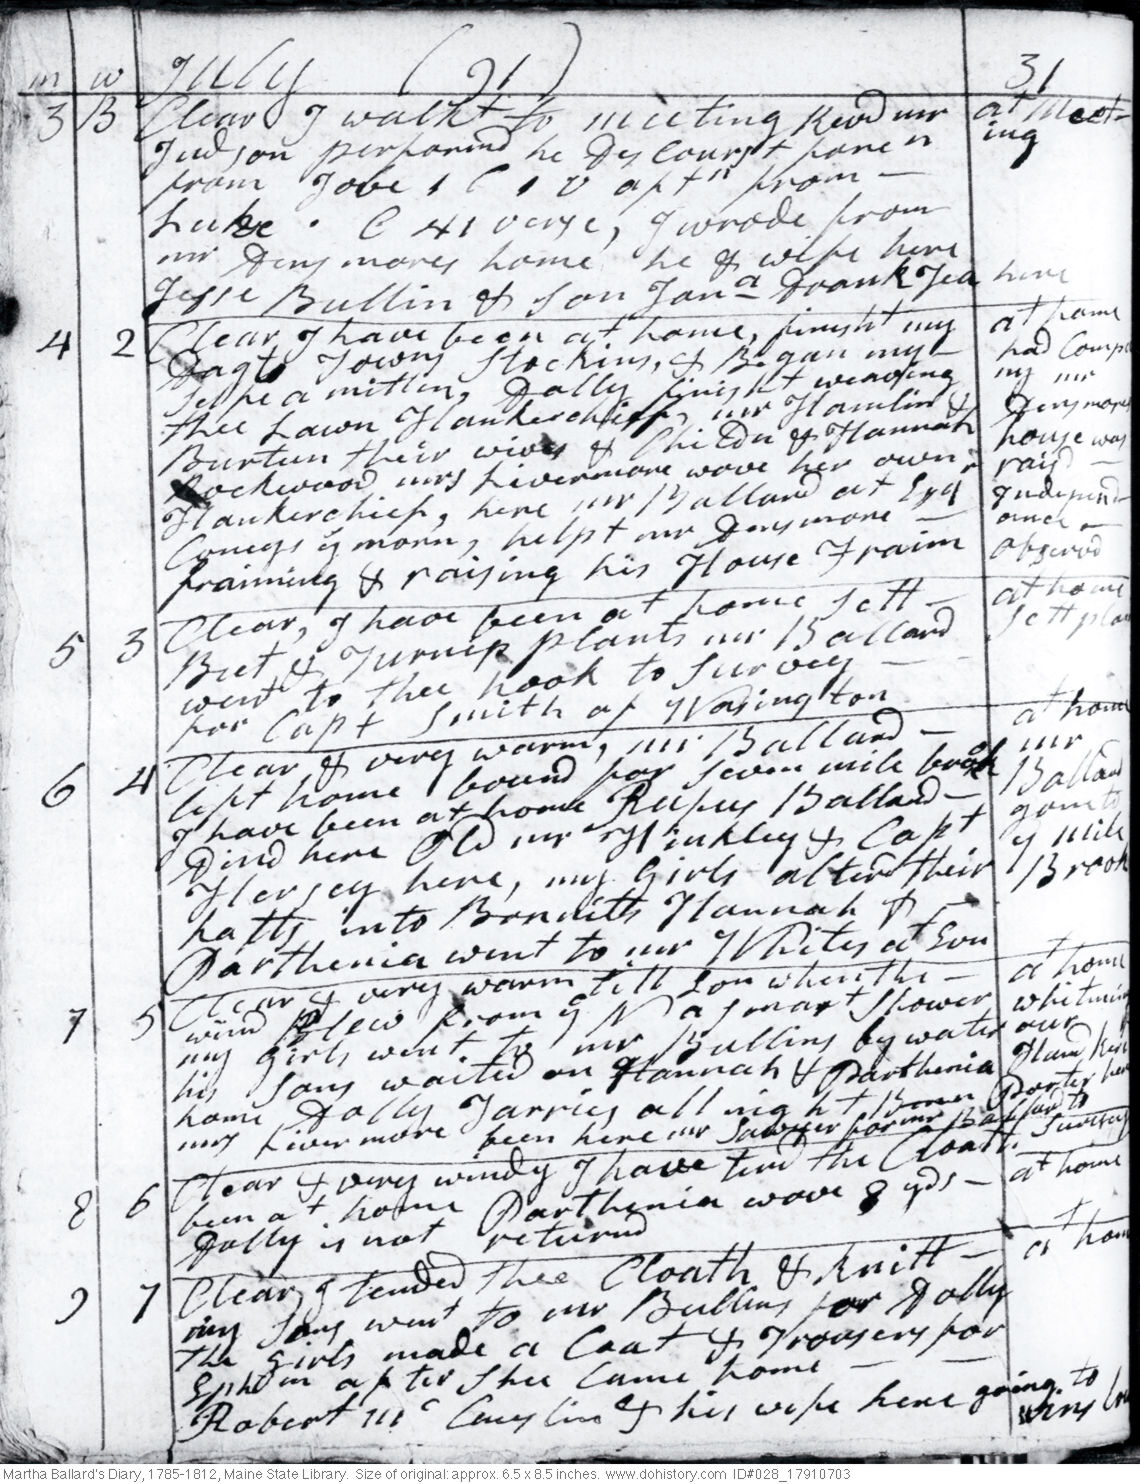 m w July (91) 31
3 B Clear I walkt to meeting Revd mr at Meet-
Judson performd he Discourst foren ing
from Jobe 1 C 1 V aftn from -
Luke C 41 verse, I wrode from
mr Densmores home he & wife here
Jesse Bullin & son Jona Drank Tea here
4 2 Clear, I have been at home, finisht my at home
Dagt Towns Stockins, & Began my- had Compa
self a mittin, Dolly finisht weaving ny mr
thee Lawn Hankerchiefs, mr Hamlin & Densmores
Burtun their wives & Childn & Hannah house was
Rockwood mrs Livermore wove her own raisd -
Hankerchief, here mr Ballard at Esqr Independ-
Coneys y morn, helpt mr Densmore - ance -
fraiming & raising his House Fraim observd
5 3 Clear, I have been at home sett - at home
Beet & Turnip plants mr Ballard Sett plan
went to thee hook to survey -
for Capt Smith of Wasington
6 4 Clear & very warm, mr Ballard - at home
left home bound for seven mile brook mr
I have been at home Rufus Ballard - Ballard
Dind here Old mr Hinkley & Capt gone to
Hersey here, my Girls alterd their 7 mile
hatts into Bonnitts Hannah & - Brook
Parthenia went to mr Whites at Evn
7 5 Clear & very warm till Evn when the - at home
wind Blew from y N a smart shower whitning
my Girls went to mr Bullins by water our
his sons waited on Hannah & Parthenia Hand Kers
home Dolly Tarries all night Porter here
mrs Livermore been here mr Sawyer for mr Ballard to survey
8 6 Clear & very windy I have tend the Cloath, at home
been at home Parthenia wove 8 yds -
Dolly is not returnd
9 7 Clear, I tended thee Cloath & knitt - at home
my sons went to mr Bullins for Dolly
the Girls made a Coat & Trousers for
Ephm after shee Came home -
Robert Mc Causlin & his wife here going to
Martha Ballard's Diary, 1785-1812, Maine State Library. Size of original: approx. 6.5 x 8.5 inches. www.dohistory.com ID#028_17910703